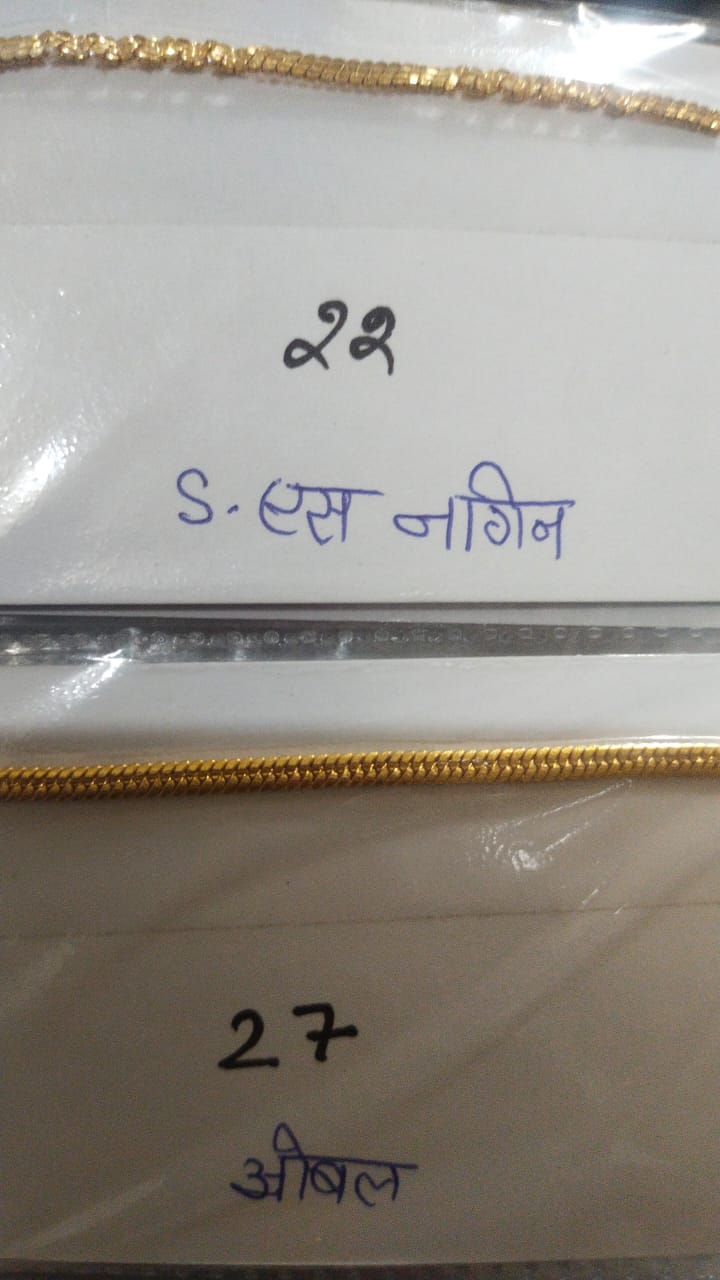 २२
S. एस नागिन
27
ओबल